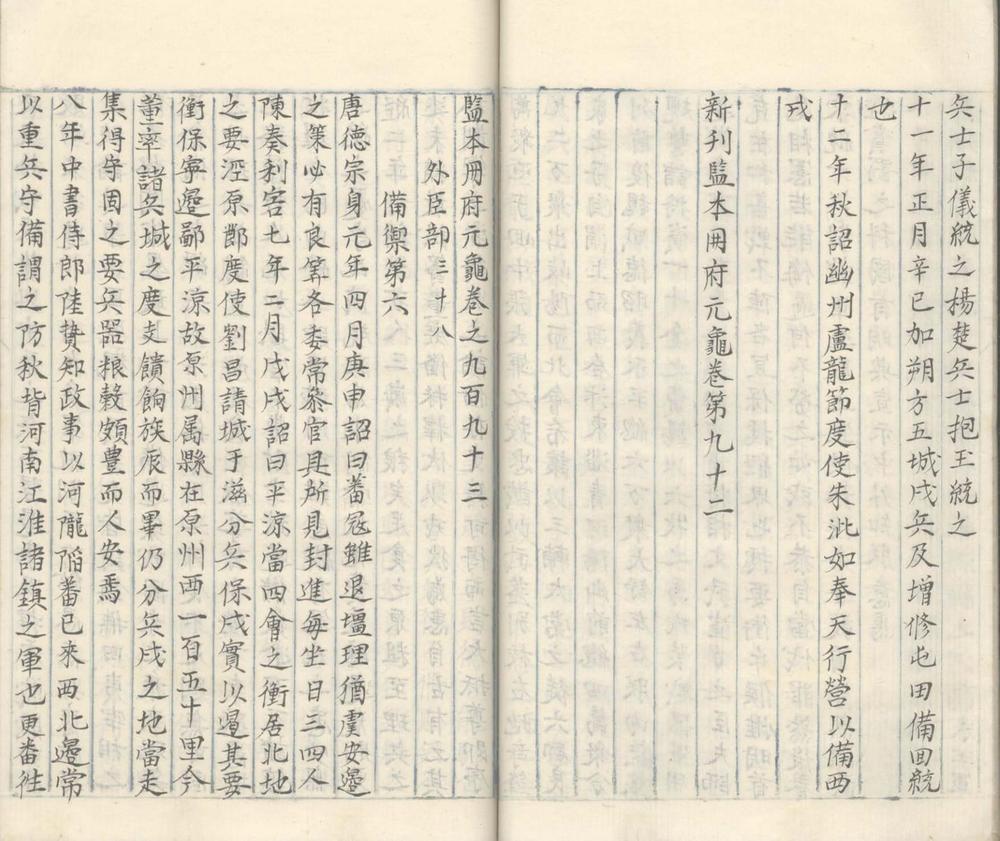 兵士子儀統之楊楚兵士抱玉統之
十一年正月辛巳加朔方五城戍兵及增修屯田備回統
也
十二年秋詔幽州盧龍節度使朱泚如奉天行營以備西
戎
新刊監本冊府元龜卷第九十二
監本冊府元龜卷之九百九十三
外臣部三十八
備禦第六
唐德宗身元年四月庚申詔曰番寇雖退壃理猶虞安邊
之策必有良筭各委常叅官具所見封進每坐日三四人
陳奏利害七年二月戊戌詔曰平涼當四會之衝居北地
之要涇原鄭度使劉昌請城于滋分兵保戍實以遏其要
衝保寧邊鄙平涼故原州属縣在原州西一百五十里今
董率諸兵城之度支饋餉族辰而畢仍分兵戍之地當走
集得守固之要兵器粮穀頗豊而人安焉
八年中書侍郎陸贄知政事以河隴䧟蕃已來西北邊常
以重兵守備謂之防秋皆河南江淮諸鎮之軍也更番徃